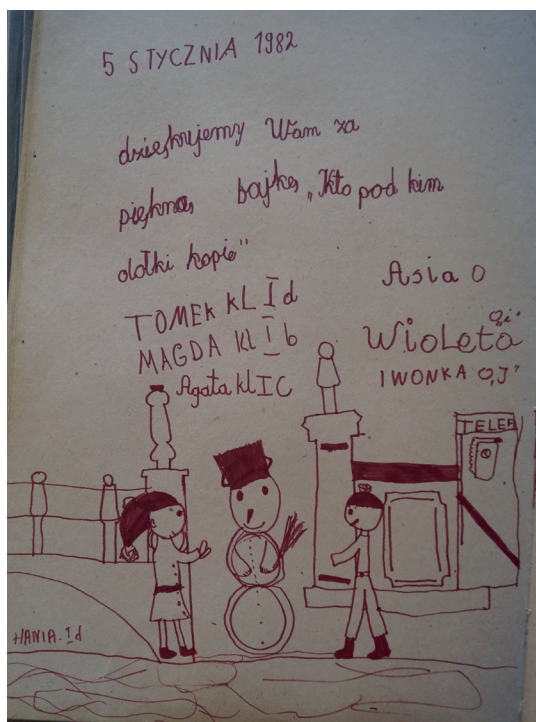 5 STYCZNIA 1982
dziękujemy Wam za
piękną bajkę „Kto pod kim
dołki kopie"
TOMEK KL I d
MAGDA kl I b
Agata kl I C
Asia O
Wioleta O„i"
IWONKA O„J"
TELEF
HANIA. Id